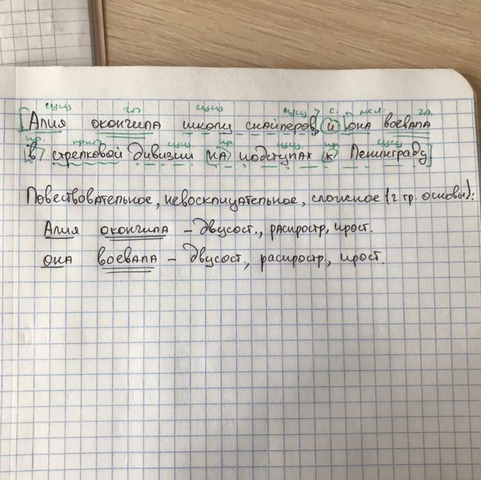 сущ. гл. сущ. сущ. с. мест. гл.
[Алия окончила школу снайперов], (и) [она воевала
пр. прил. сущ. пр. сущ. пр. сущ.
(в) стрелковой дивизии (на) подступах (к) Ленинграду]
Повествовательное, невосклицательное, сложное (2 гр. основы):
Алия окончила – двусост., распростр., прост.
она воевала – двусост., распростр., прост.